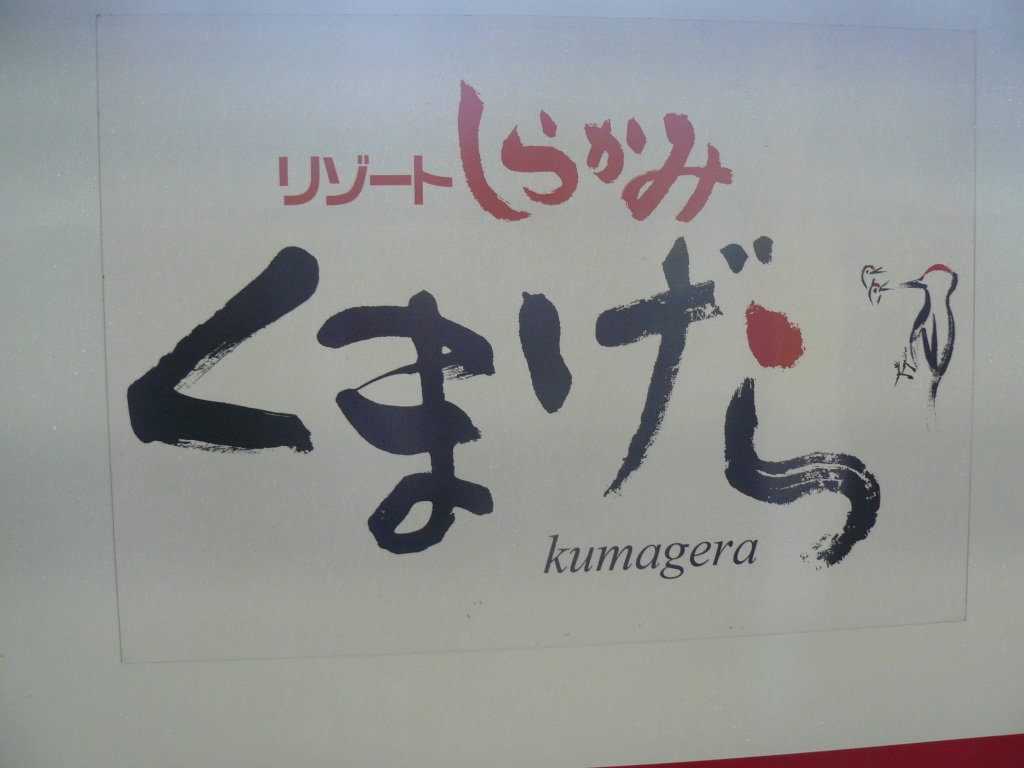 リゾートしらかみ
くまげら
kumagera